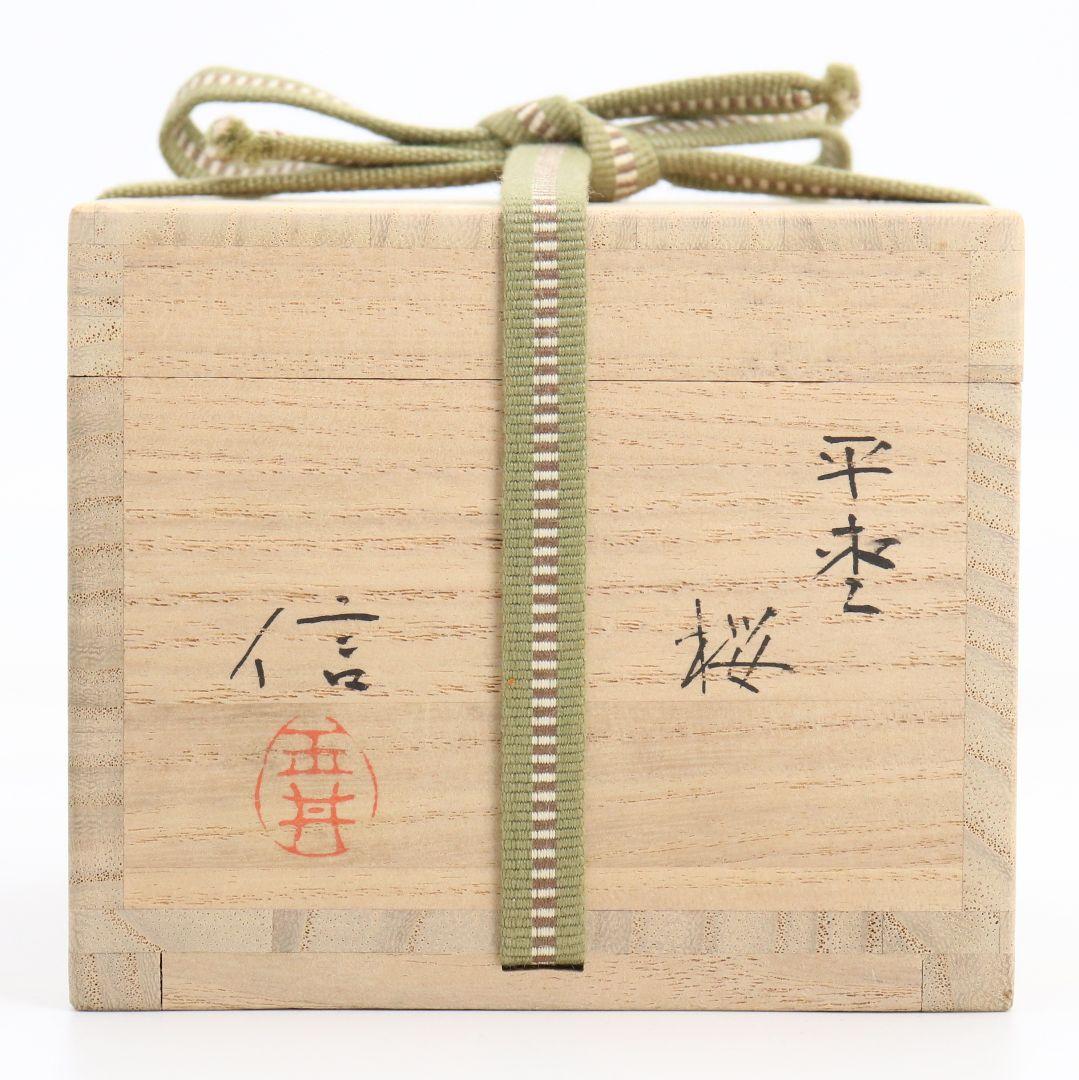 平棗
桜
信